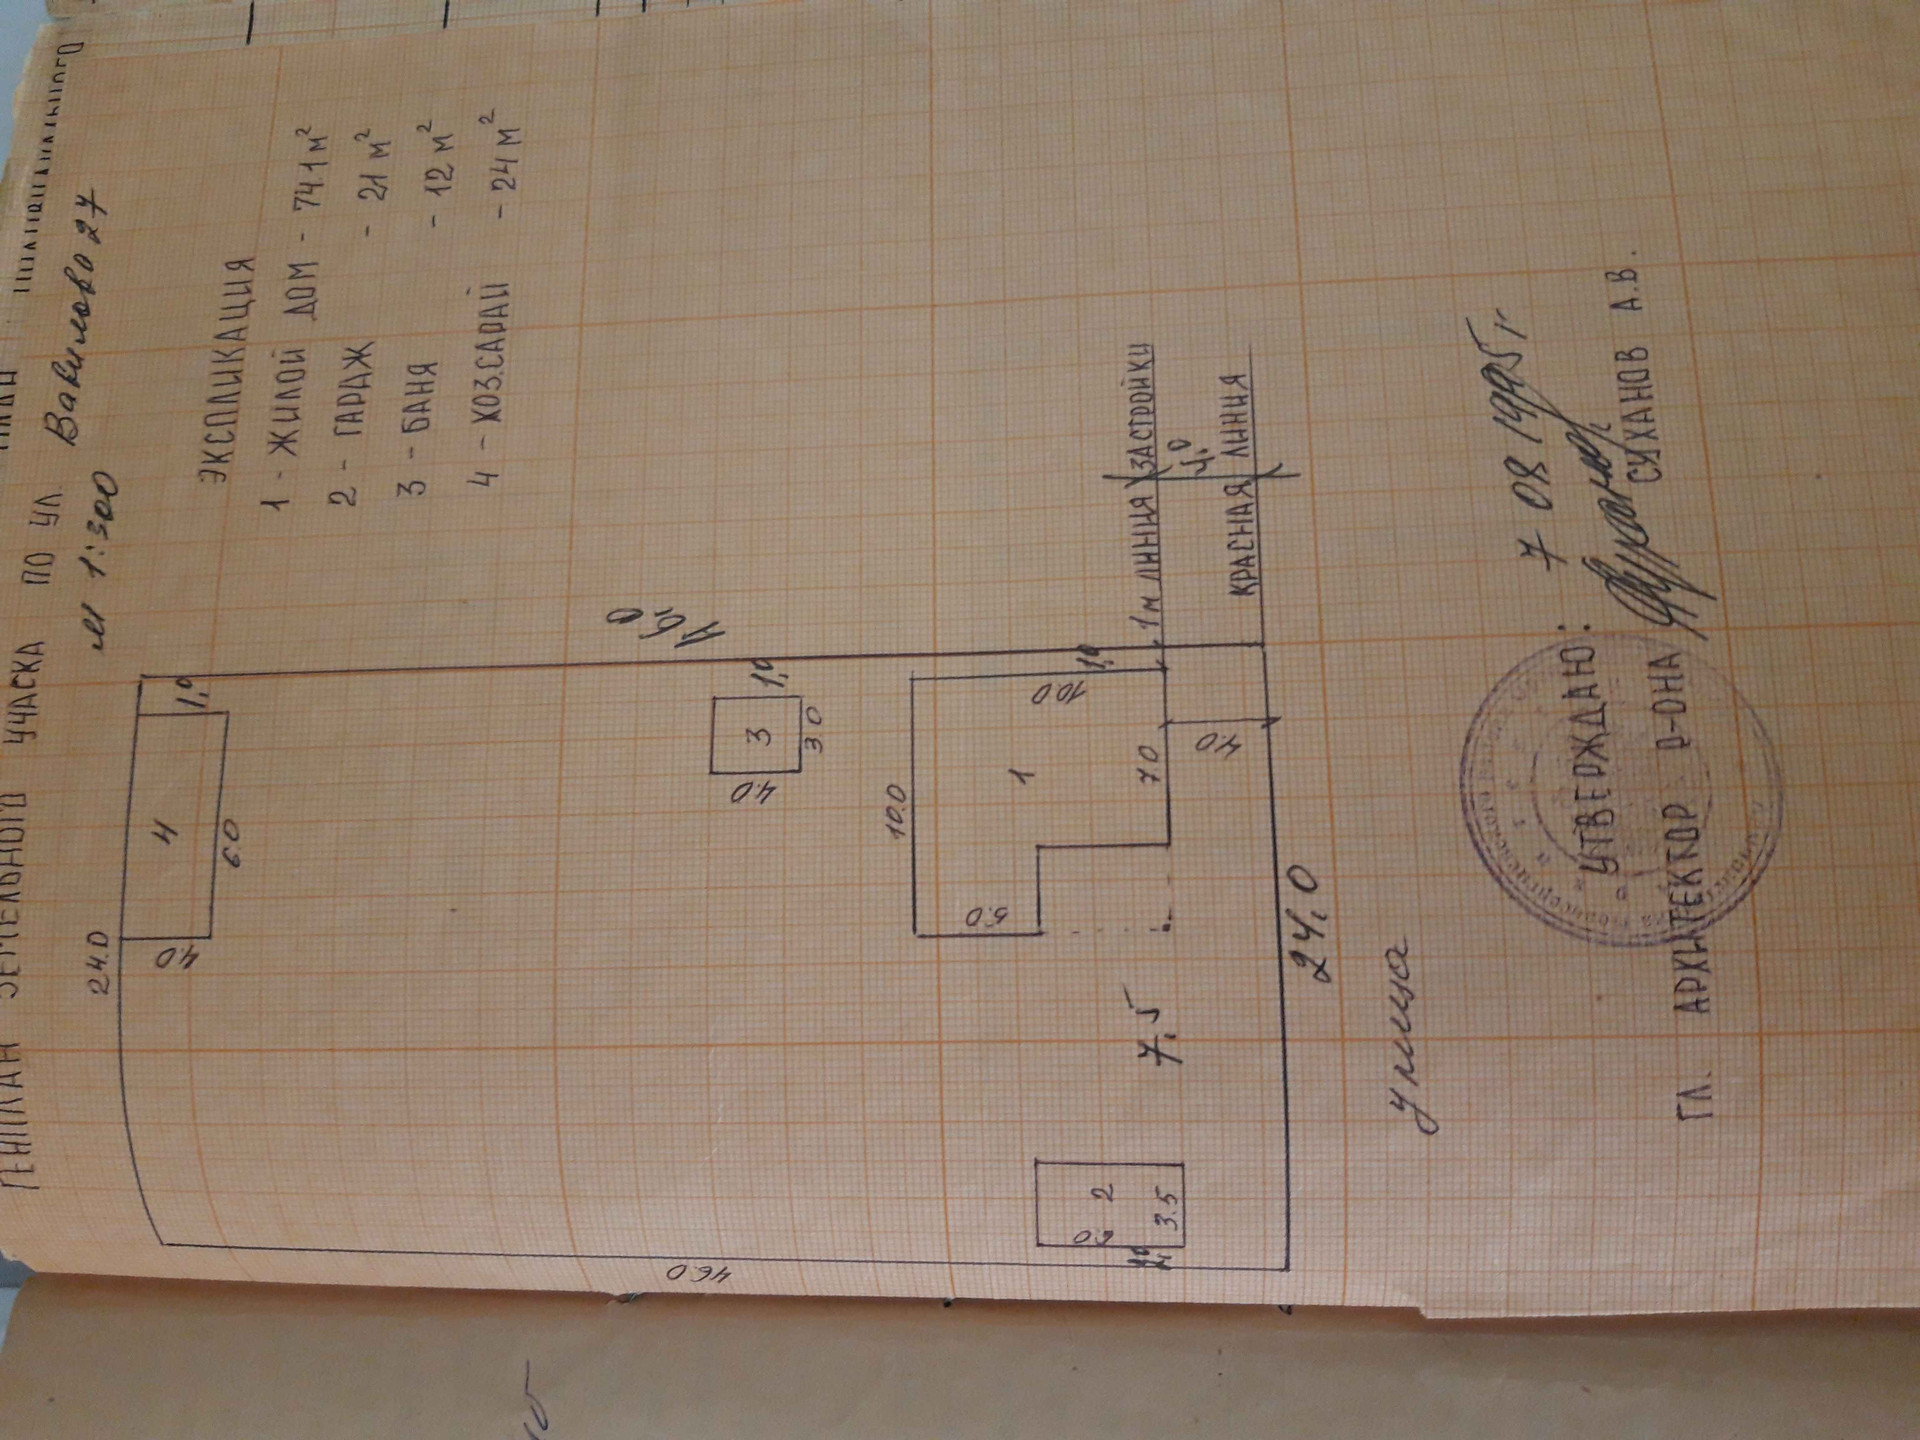 ГЕНПЛАН ЗЕМЕЛЬНОГО УЧАСКА ПО УЛ. Вакилово 27
М 1:300
ЭКСПЛИКАЦИЯ
1 - ЖИЛОЙ ДОМ - 74.1 м²
2 - ГАРАЖ - 21 м²
3 - БАНЯ - 12 м²
4 - ХОЗ.САРАЙ - 24 м²
24.0
4
1,0
4.0
6.0
46,0
3
1,0
4.0
3.0
10.0
1
10.0
1,0
5.0
7.0
4.0
1 м ЛИНИЯ ЗАСТРОЙКИ
4,0
КРАСНАЯ ЛИНИЯ
7,5
2
6.0
3.5
1,0
46.0
24,0
улица
УТВЕРЖДАЮ: 7 08 1995 г
ГЛ. АРХИТЕКТОР Р-ОНА СУХАНОВ А.В.